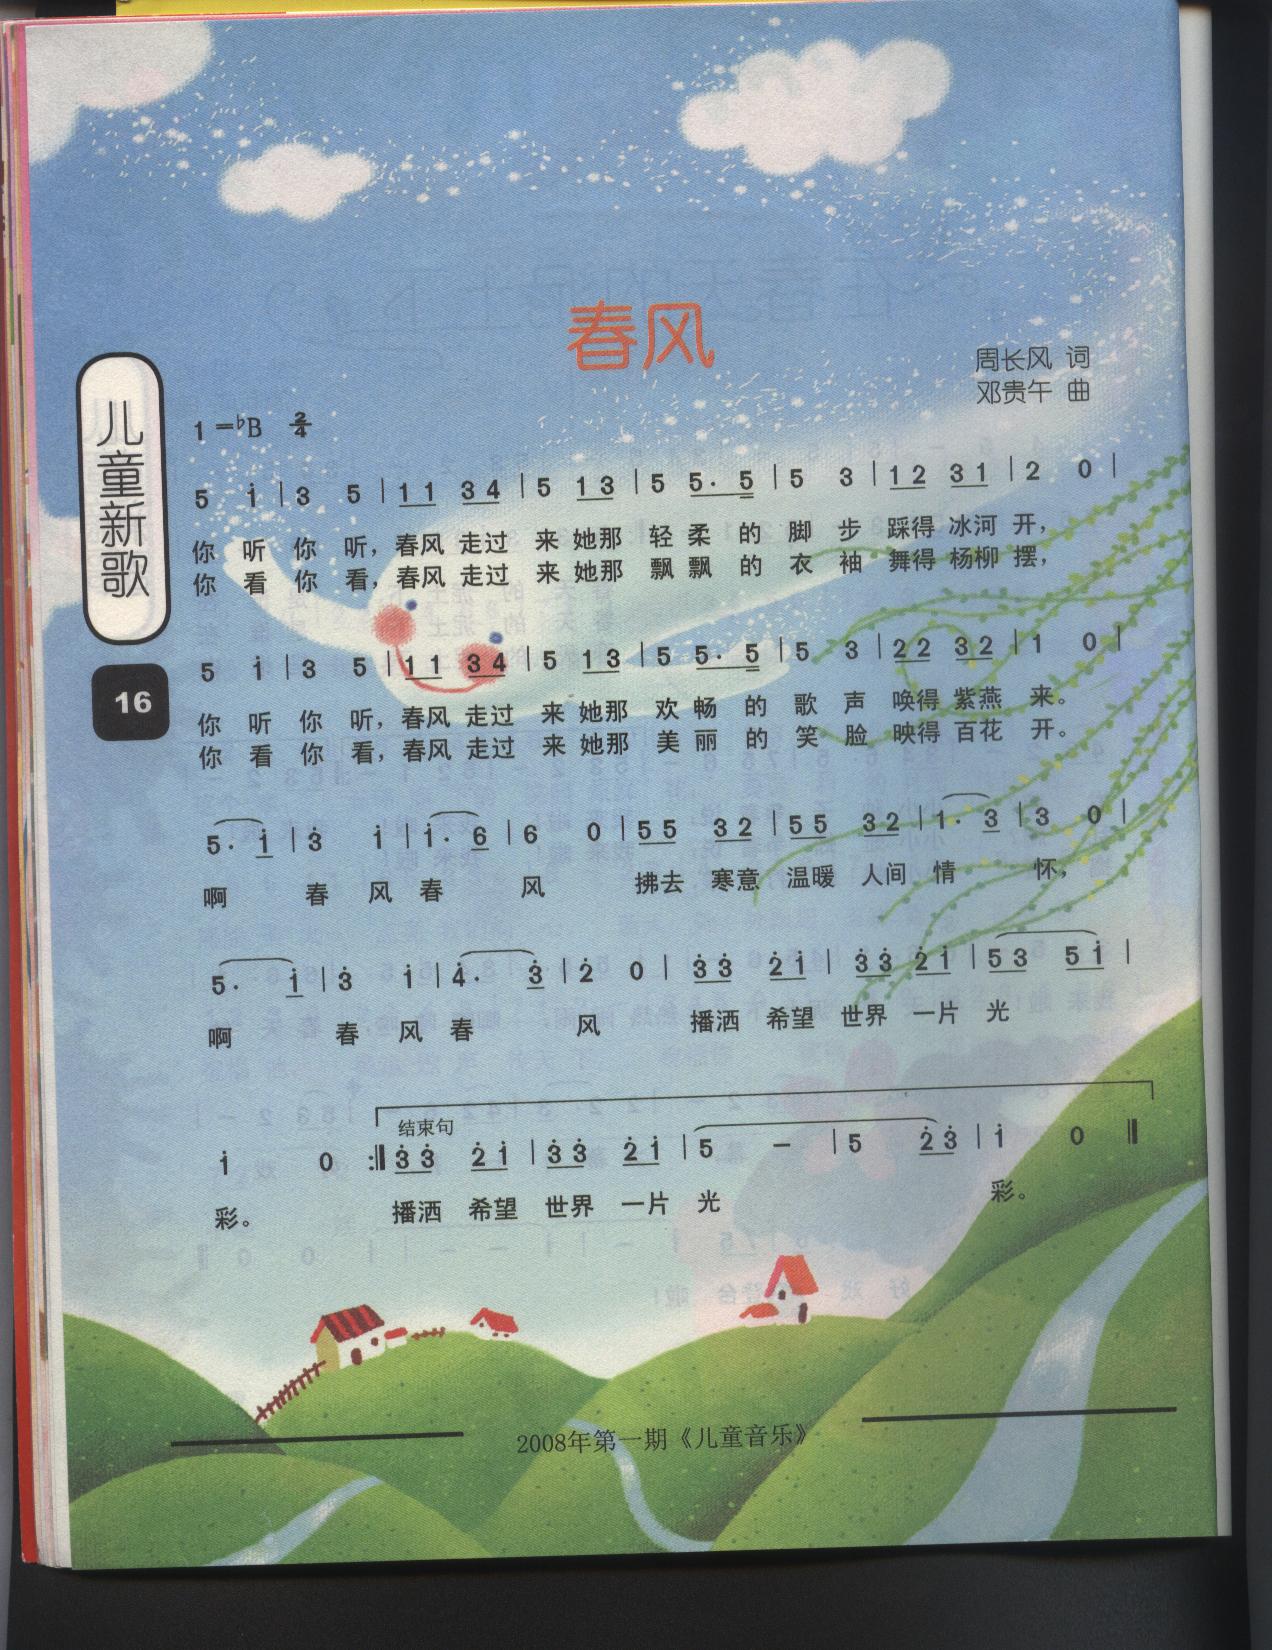 春风
周长风 词
邓贵午 曲
儿童新歌
16
1=♭B 2/4
5 i̇ | 3 5 | 1 1 3 4 | 5 1 3 | 5 5· 5 | 5 3 | 1 2 3 1 | 2 0 |
你 听 你 听，春风 走过 来 她那 轻 柔 的 脚 步 踩得 冰河 开，
你 看 你 看，春风 走过 来 她那 飘 飘 的 衣 袖 舞得 杨柳 摆，
5 i̇ | 3 5 | 1 1 3 4 | 5 1 3 | 5 5· 5 | 5 3 | 2 2 3 2 | 1 0 |
你 听 你 听，春风 走过 来 她那 欢 畅 的 歌 声 唤得 紫燕 来。
你 看 你 看，春风 走过 来 她那 美 丽 的 笑 脸 映得 百花 开。
5· i̇ | 3̇ i̇ | i̇· 6 | 6 0 | 5 5 3 2 | 5 5 3 2 | 1· 3 | 3 0 |
啊 春 风 春 风 拂去 寒意 温暖 人间 情 怀，
5· i̇ | 3̇ i̇ | 4̇· 3̇ | 2̇ 0 | 3̇ 3̇ 2̇ i̇ | 3̇ 3̇ 2̇ i̇ | 5 3 5 i̇ |
啊 春 风 春 风 播洒 希望 世界 一片 光
结束句
i̇ 0 :‖ 3̇ 3̇ 2̇ i̇ | 3̇ 3̇ 2̇ i̇ | 5 － | 5 2̇ 3̇ | i̇ 0 ‖
彩。 播洒 希望 世界 一片 光 彩。
2008年第一期《儿童音乐》